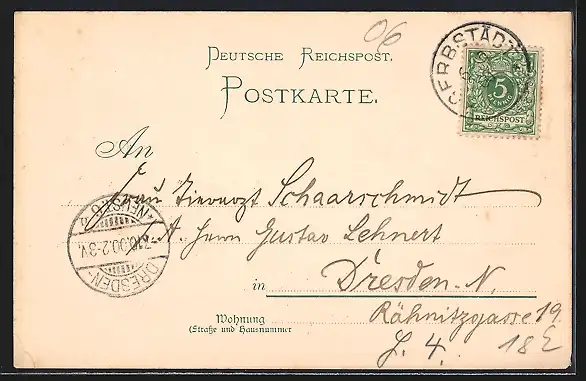 06
DEUTSCHE REICHSPOST.
POSTKARTE.
GERBSTÄDT
5
PFENNIG
REICHSPOST
An
Frau Tierarzt Schaarschmidt
p. A. Herrn Gustav Lehnert
in Dresden-N.
Wohnung
(Straße und Hausnummer
Rähnitzgasse 19.
18 E
DRESDEN-
NEUST. 6
7.10.00.2-3V.